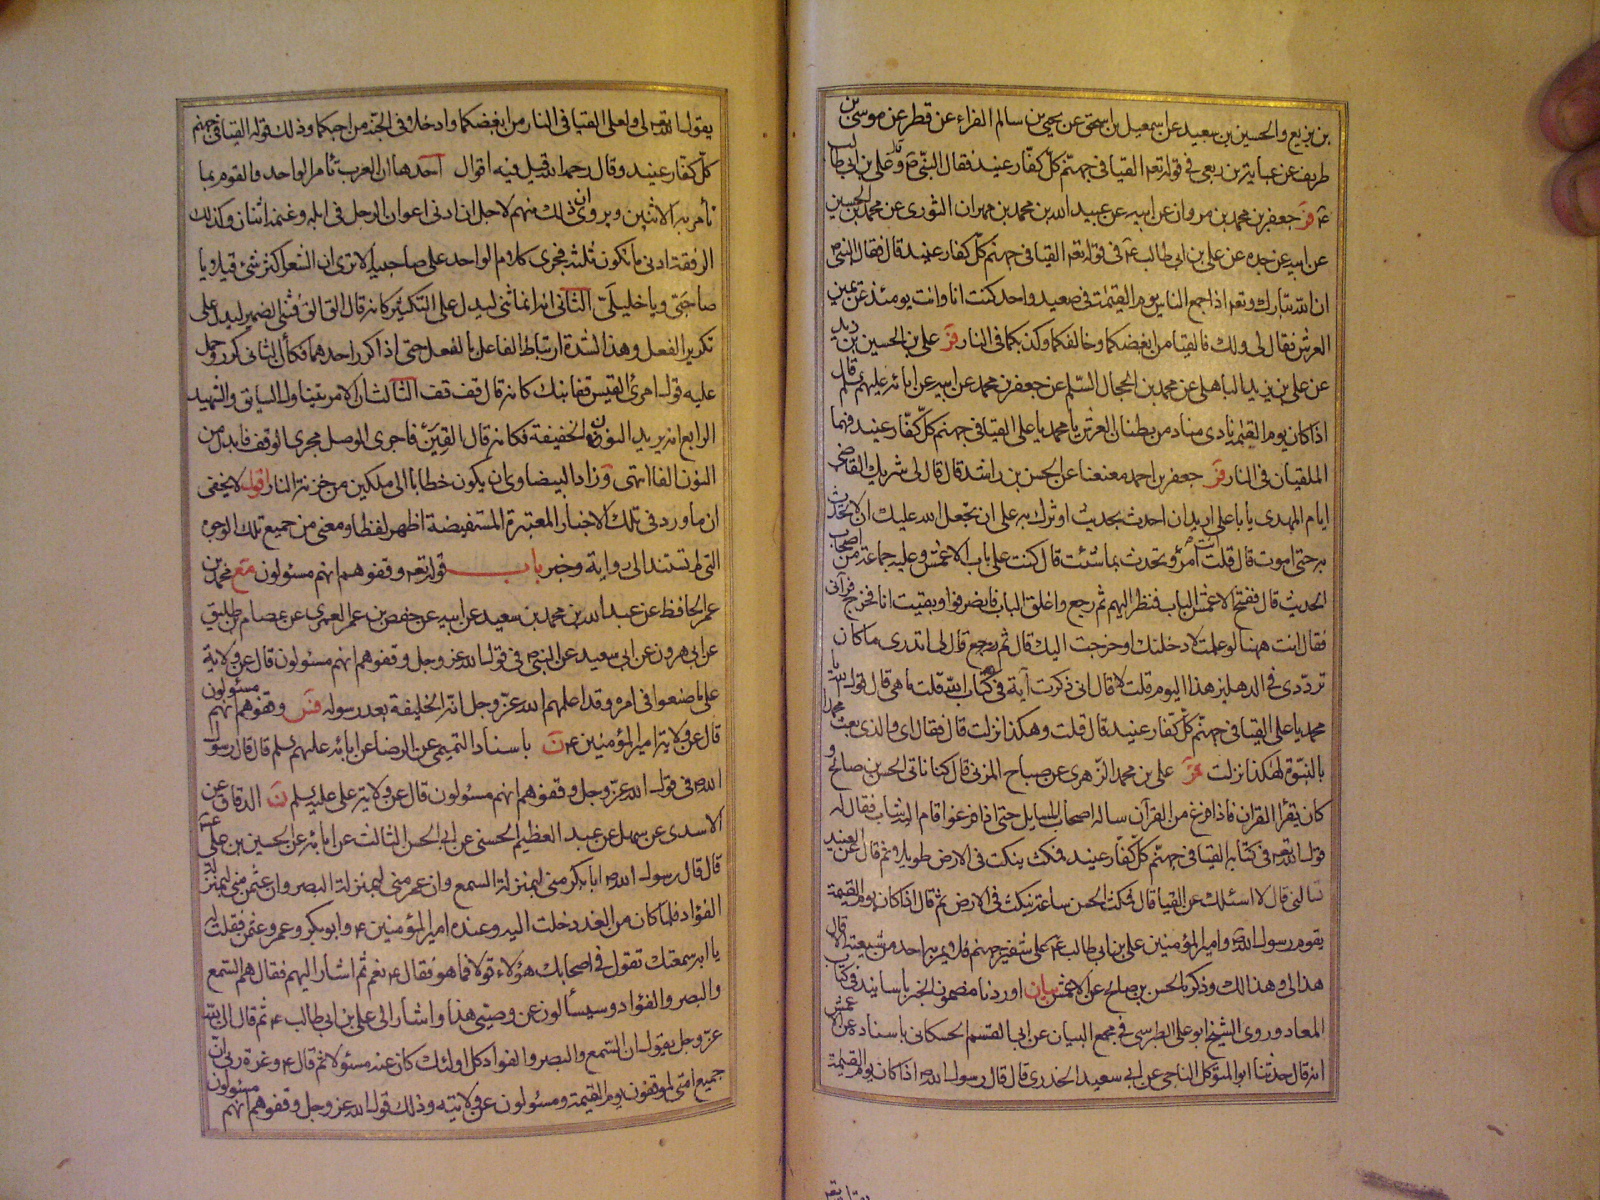 بن بزيع والحسين بن سعيد عن اسمعيل بن اسحق عن يحيى بن سالم الفراء عن قطر عن موسى بن
طريف عن عباية بن ربعى فى قوله تعه القيا فى جهنم كل كفار عنيد فقال النبى ص وعلى بن ابى طالب
ع فر جعفر بن محمد بن مروان عن ابيه عن عبيد الله بن محمد بن مهران الثورى عن محمد بن الحسين
عن ابيه عن جده عن على بن ابى طالب ع فى قوله تعه القيا فى جهنم كل كفار عنيد قال فقال النبى ص
ان الله تبارك وتعه اذا جمع الناس يوم القيمة فى صعيد واحد كنت انا وانت يومئذ عن يمين
العرش فقال لى ولك فالقيا من ابغضكما وخالفكما وكذبكما فى النار فر على بن الحسين بن زيد
عن على بن يزيد الباهلى عن محمد بن الحجال السلم عن جعفر بن محمد عن ابيه عن ابائه عليهم قال
اذا كان يوم القيمة نادى مناد من بطنان العرش يا محمد يا على القيا فى جهنم كل كفار عنيد فهما
الملقيان فى النار فر جعفر بن احمد معنعنا عن الحسن بن راشد قال قال لى شريك القاضى
ايام المهدى يا با على اريد ان احدث بحديث اوثرك به على ان تجعل الله عليك ان لا تحدث
به حتى اموت قال قلت انت امرؤ تحدث بما شئت قال كنت على باب الاعمش وعليه جماعة من اصحاب
الحديث قال ففتح الاعمش الباب فنظر اليهم ثم رجع واغلق الباب فانصرفوا وبقيت انا فخرج فرآنى
فقال انت ههنا لو علمت لادخلتك او خرجت اليك قال ثم رجع قال لى اتدرى ما كان
تردّدى فى الدهليز هذا اليوم قلت لا قال انى ذكرت آية فى كتاب الله قلت ما هى قال قول الله يا
محمد يا على القيا فى جهنم كل كفار عنيد قال قلت وهكذا نزلت قال فقال اى والذى بعث محمدا
بالنبوة لهكذا نزلت فر على بن محمد الزهرى عن صباح المزنى قال كنا ناتى الحسن بن صالح و
كان يقرأ القران فاذا فرغ من القرآن ساله اصحاب المسايل حتى اذا فرغوا قام اليه شاب فقال له
قول الله تعه فى كتابه القيا فى جهنم كل كفار عنيد فمكث ينكت فى الارض طويلا ثم قال عن العنيد
تسالنى قال لا اسئلك عن القيا قال فمكث الحسن ساعة ينكت فى الارض ثم قال اذا كان يوم القيمة
يقوم رسول الله ص وامير المؤمنين على بن ابى طالب ع على شفير جهنم فلا يمر به احد من شيعته الا قال
هذا لى وهذا لك وذكره الحسن بن صالح عن الاعمش بيان اوردنا مضمون الخبر باسانيد فى كتاب
المعاد وروى الشيخ ابو على الطبرسى فى مجمع البيان عن ابى القسم الحسكانى باسناده عن الاعمش
انه قال حدثنا ابو المتوكل الناجى عن ابى سعيد الخدرى قال قال رسول الله ص اذا كان يوم القيمة
يقول الله تعه لى ولعلى القيا فى النار من ابغضكما وادخلا فى الجنة من احبكما وذلك قوله القيا فى جهنم
كل كفار عنيد وقال رحمه الله قيل فيه اقوال احدها ان العرب تأمر الواحد والقوم بما
تأمر به الاثنين ويروى ان ذلك منهم لاجل ان ادنى اعوان الرجل فى ابله وغنمه اثنان وكذلك
الرفقة ادنى ما تكون ثلثة فجرى كلام الواحد على صاحبيه الا ترى ان الشعر اكثر شئ قيلا يا
صاحبى ويا خليلى الثانى انه انما ثنى ليدل على التكثير كانه قال الق الق فثنى الضمير ليدل على
تكرير الفعل وهذا لشدة ارتباط الفاعل بالفعل حتى اذا كرر احدهما فكأن الثانى كرر وحمل
عليه قول امرئ القيس قفا نبك كانه قال قف قف الثالث ان الامر تناول السايق والشهيد
الرابع انه يريد النون الخفيفة فكانه قال القين فاجرى الوصل مجرى الوقف فابدل من
النون الفا انتهى وزاد البيضاوى ان يكون خطابا الى ملكين من خزنة النار اقول لا يخفى
ان ما ورد فى تلك الاخبار المعتبرة المستفيضة اظهر لفظا ومعنى من جميع تلك الوجوه
التى لم تستند الى رواية وخبر باب قوله تعه وقفوهم انهم مسئولون مع محمد بن
عمر الحافظ عن عبد الله بن محمد بن سعيد عن ابيه عن حفص بن عمر العمرى عن عصام بن طليق
عن ابى هرون عن ابى سعيد عن النبى ص فى قول الله عز وجل وقفوهم انهم مسئولون قال عن ولاية
على ما صنعوا فى امره وقد اعلمهم الله عز وجل انه الخليفة بعد رسوله فس وقفوهم انهم مسئولون
قال عن ولاية امير المؤمنين ع ن باسناد التميمى عن الرضا عن ابائه عليهم سلم قال قال رسول
الله ص فى قول الله عز وجل وقفوهم انهم مسئولون قال عن ولاية على عليه سلم ن الدقاق عن
الاسدى عن سهل عن عبد العظيم الحسنى عن ابى الحسن الثالث عن ابائه عن الحسين بن على ع
قال قال رسول الله ص ان ابا بكر منى لبمنزلة السمع وان عمر منى لبمنزلة البصر وان عثمن منى لبمنزلة
الفؤاد فلما كان من الغد دخلت اليه وعنده امير المؤمنين ع وابو بكر وعمر وعثمن فقلت له
يا ابه سمعتك تقول فى اصحابك هؤلاء قولا فما هو فقال ع نعم ثم اشار اليهم فقال هم السمع
والبصر والفؤاد وسيسألون عن وصيتى هذا واشار الى على بن ابى طالب ع ثم قال ان الله
عز وجل يقول ان السمع والبصر والفواد كل اولئك كان عنه مسئولا ثم قال ع وعزة ربى ان
جميع امتى لموقفون يوم القيمة ومسئولون عن ولايته وذلك قول الله عز وجل وقفوهم انهم مسئولون